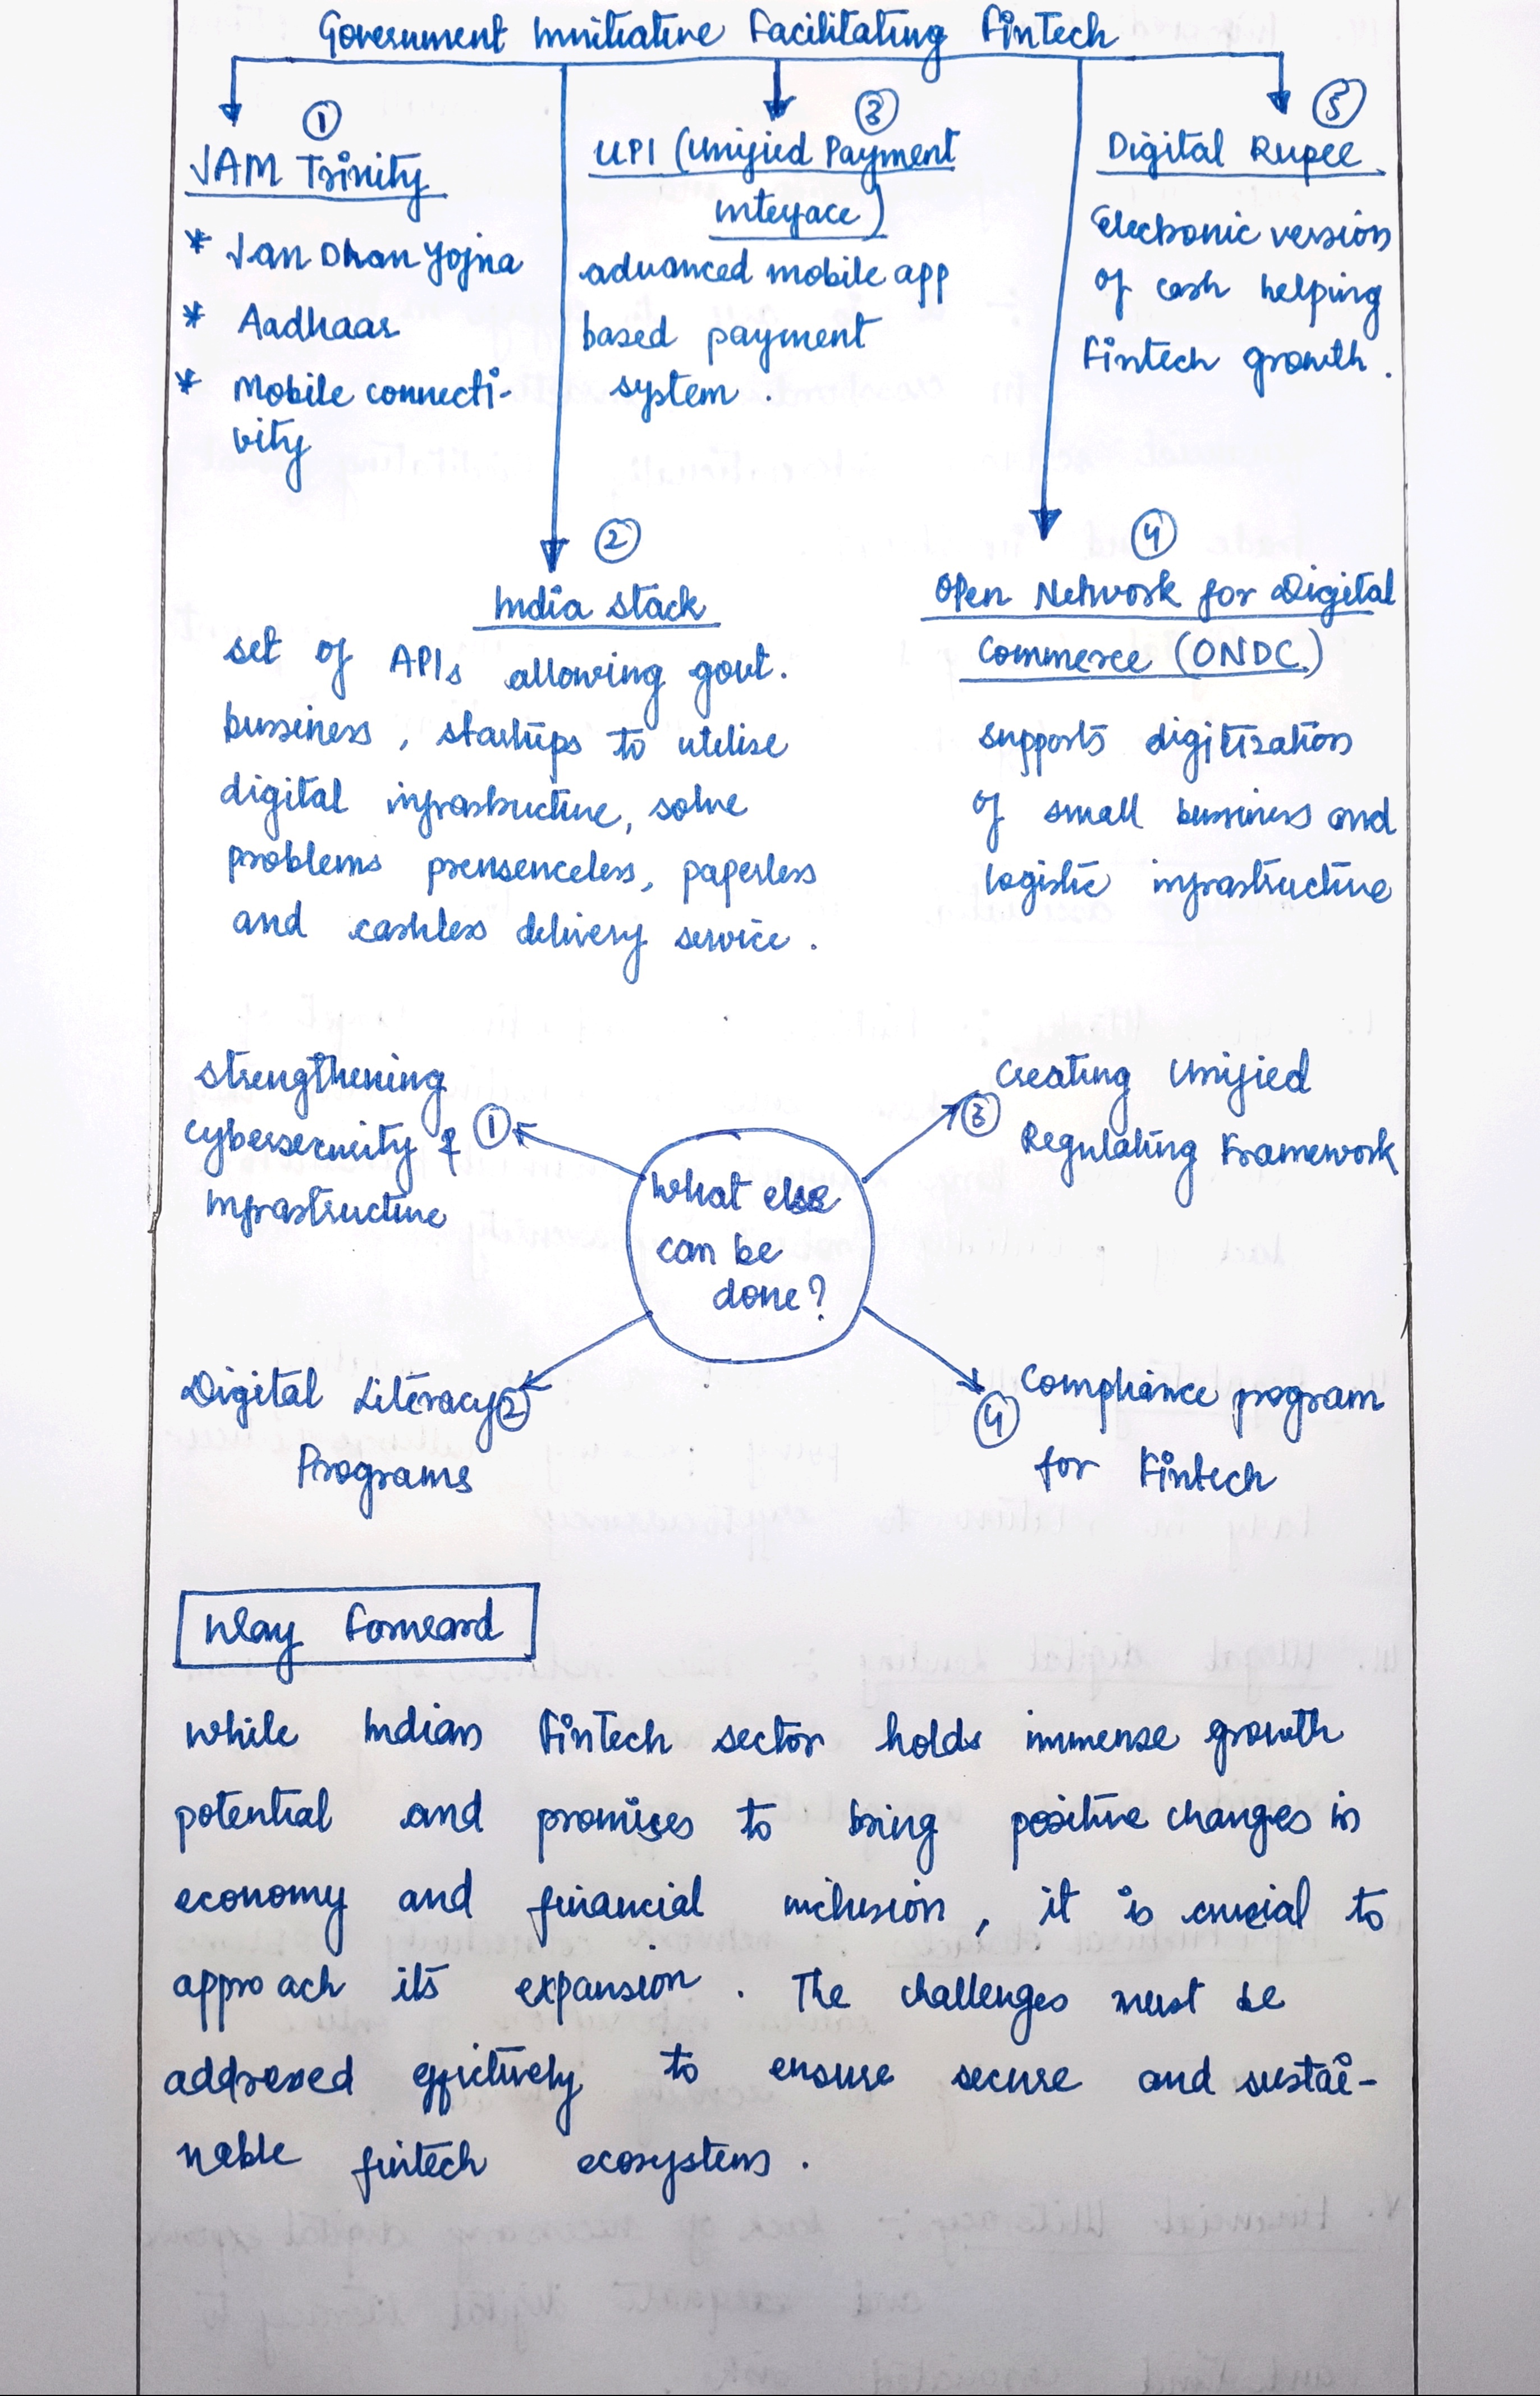 Government Innitiative Facilitating Fintech
①
JAM Trinity
* Jan Dhan Yojna
* Aadhaar
* Mobile connecti-
vity
③
UPI (Unified Payment
Interface)
advanced mobile app
based payment
system.
⑤
Digital Rupee
Electronic version
of cash helping
Fintech growth.
②
India Stack
set of APIs allowing govt.
bussiness, startups to utilise
digital infrastructure, solve
problems prensenceless, paperless
and cashless delivery service.
④
Open Network for Digital
Commerce (ONDC.)
supports digitization
of small bussiness and
logistic infrastructure
What else
can be
done?
①
Strengthening
cybersecurity &
Infrastructure
②
Digital Literacy
Programs
③
Creating Unified
Regulating Framework
④
Compliance program
for Fintech
Way Forward
While Indian Fintech sector holds immense growth
potential and promises to bring positive changes in
economy and financial inclusion, it is crucial to
approach its expansion. The challenges must be
addressed effictively to ensure secure and sustai-
nable fintech ecosystem.